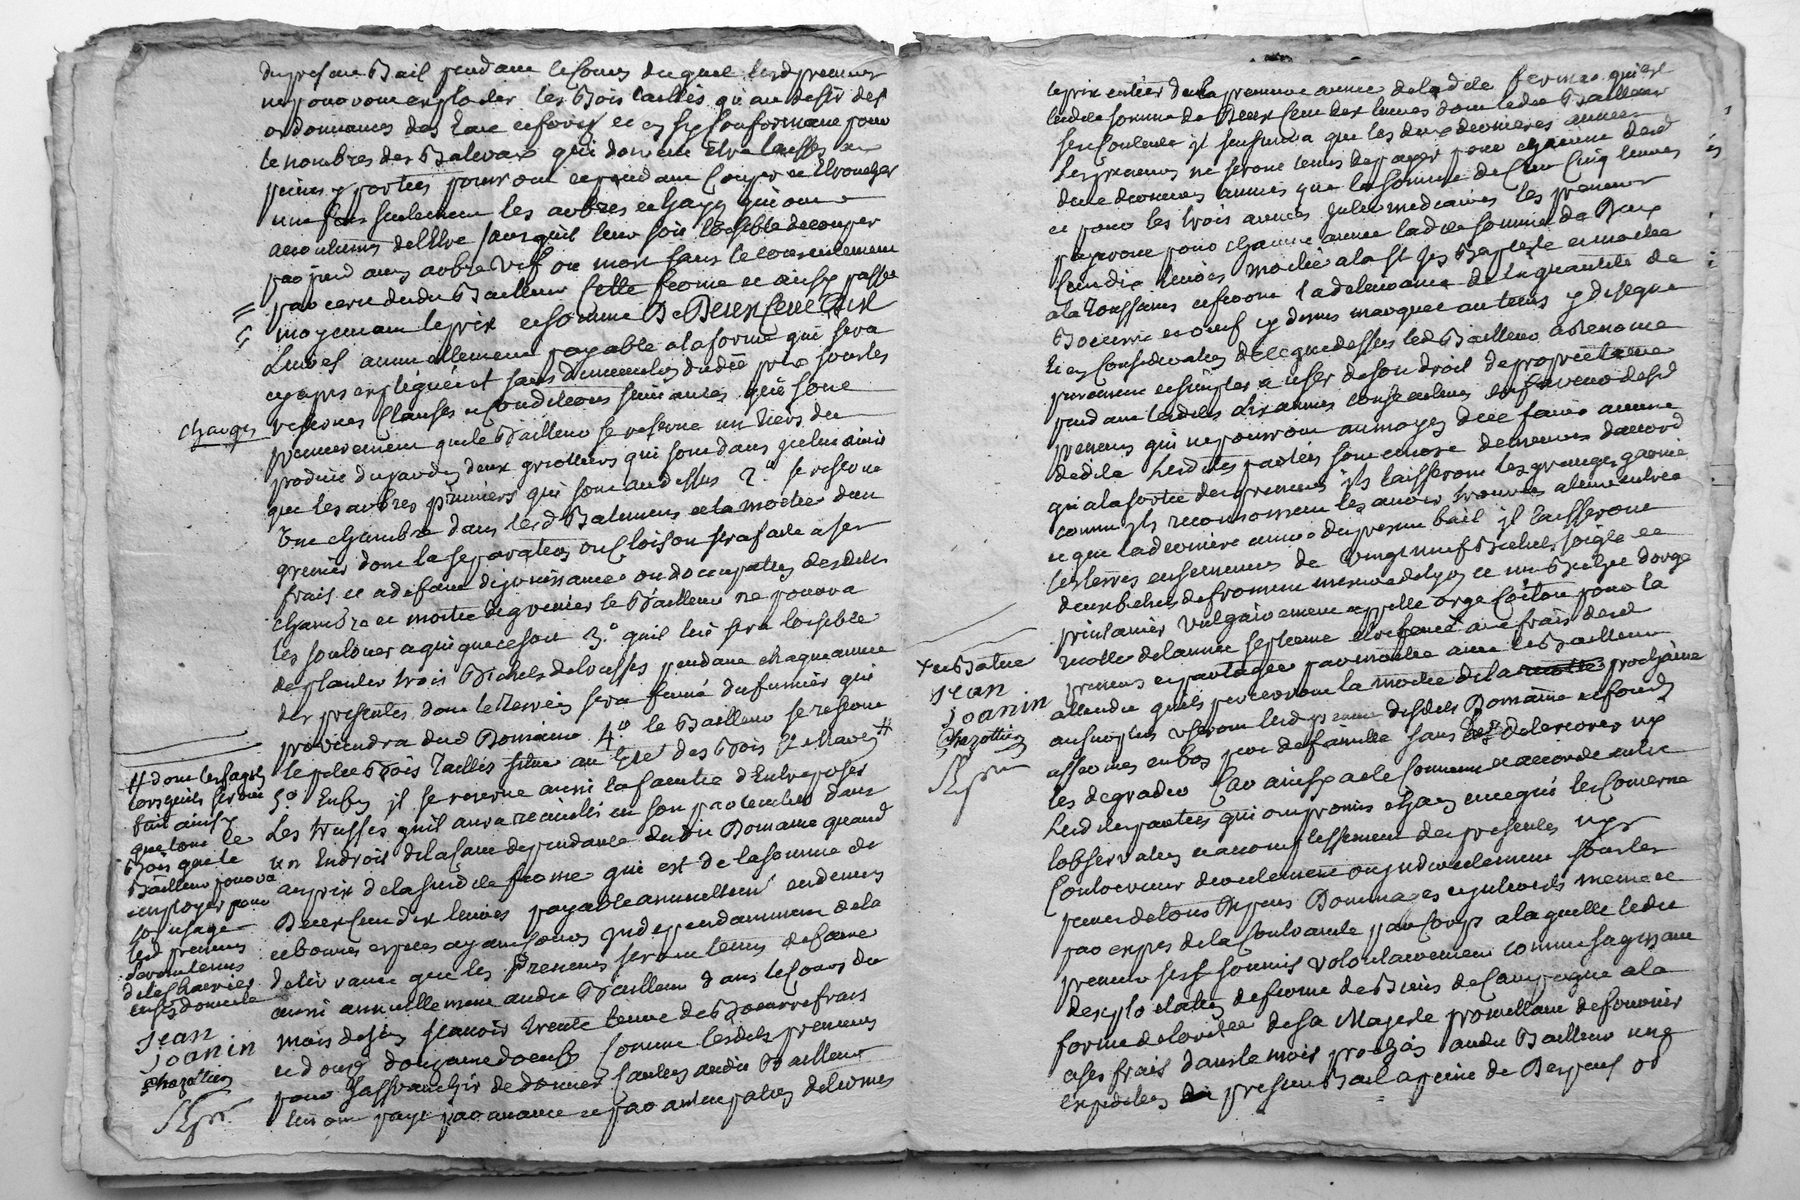 du present Bail pendant le Cours duquel lesd preneurs
ne pourront exploiter les Bois taillis qu'au desir des
ordonnances des Eaux et forets et en sy Conformant pour
le nombres des Balivaux qui doivent être laissés
peines y portées pourront cependant Couper et Ebrancher
une fois seulement les arbres et hayes qui ont
accoutumés de l'Etre sans quil leur soit loisible de couper
par pied aucun arbre vif ou mort sans le Consentement
par ecrit dudit Bailleur Cette ferme est ainsy passée
moyenant le prix et somme De Deux Cent Dix
Livres annuellement payable a la forme qui sera
cy apres expliquée et sans diminution dudit prix sous les
Charges reserves Clauses et Conditions suivantes qui sont
premierement que le Bailleur se reserve un tiers du
produit du jardin deux griottiers qui sont dans
que les arbres pruniers qui sont au dessus 2.° se reserve
Une chambre dans lesd Batimens et la moitié d'un
grenier dont la separation ou Cloison sera faite a ses
frais et a defaut de jouissance ou d'occupation desdites
chambre et moitié de grenier le Bailleur ne pourra
les soulouer a qui que ce soit 3.° quil lui sera loisible
de planter trois Bichets de trousses pendant chaque année
des presentes dont le terrein sera fumé du fumier qui
proviendra dud Domaine 4.° le Bailleur se reserve
le petit Bois Taillis situé au des Bois #
5.° Enfin il se reserve aussi la faculté d'Entreposer
Les truffes quil aura recueilli en son particulier dans
un Endroit de la Cave dependante dudit Domaine quand
au prix de la susd.te ferme qui est de la somme de
Deux Cent dix livres payable annuellement en deniers
et bonnes especes ayant Cours Independamment de la
delivrance que les Preneurs seront tenus de faire
aussi annuellement audit Bailleur dans le Cours du
mois de juin scavoir trente livres de Beurre frais
et douze douzaines doeufs Comme lesdits preneurs
pour saffranchir de donner Caution audit Bailleur
lui ont payé par avance et par anticipation de termes
# dont les fagots
lorsquils seront
fait ainsy
que tout le
Bois que le
Bailleur pourra
employer pour
son usage
lesd preneurs
seront tenus
de les charrier
en son domicile
Jean
Joanin
Chazottier
le prix entier de la premiere année de lad.te ferme qui est
lad.te somme de Deux Cent dix livres dont ledit Bailleur
se Contente il sensuivra que les deux dernieres années
Les preneurs ne seront tenus de payer pour chacune desd
deux dernieres années que la somme de Cent Cinq livres
et pour les trois années Intermediaires les preneurs
payeront pour chacune année lad.te somme de Deux
Cent dix livres moitié a la St Jn Baptiste et moitié
a la Toussaint et feront la delivrance de la quantité de
Beurre et oeuf cy dessus marquée au tems y designé
Et en Consideration de ce que dessus led Bailleur a renoncé
purement et simplement a user de son droit de proprietaire
pendant lesdites années consecutives en faveur desd
preneurs qui ne pourront au moyen de ce faire aucune
dedite Lesdites parties sont encore demeurés daccord
qu'a la sortie des preneurs ils laisseront les granges garnie
comme ils reconnoissent les avoir trouvés a leur entrée
et que la derniere année du present bail il laisseront
les terres ensemencées de vingt neuf Bichets soigle et
deux bichets de froment mesure de Lyon et un Bichet dorge
printanier vulgairement appellé orge Coiton pour la
recolte de lannée septieme etre fauché aux frais desd
preneurs et partagée par moitié avec led Bailleur
attendu quils percevront la moitié de la prochaine
au surplus useront lesd preneurs desdits Domaine et fonds
assermés en bon pere de famille sans les deteriorer ny
les degrader Car ainsy a été Convenu et accordé entre
Lesdites parties qui ont promis chacun en ce qui les Concerne
lobservation et accomplissement des presentes ny
Contrevenir directement ou Indirectement sous les
peines de tous Depens Dommages et Interets meme
par expres de la Contrainte par Corps a laquelle ledit
preneur sest soumis volontairement comme sagissant
dexploitation de ferme de Biens de Campagne a la
forme de ledit de sa Majesté promettant de fournir
a ses frais dans le mois prochain audit Bailleur une
expedition du present Bail a peine de Depens
+ en Batue
Jean
Joanin
Chazottier